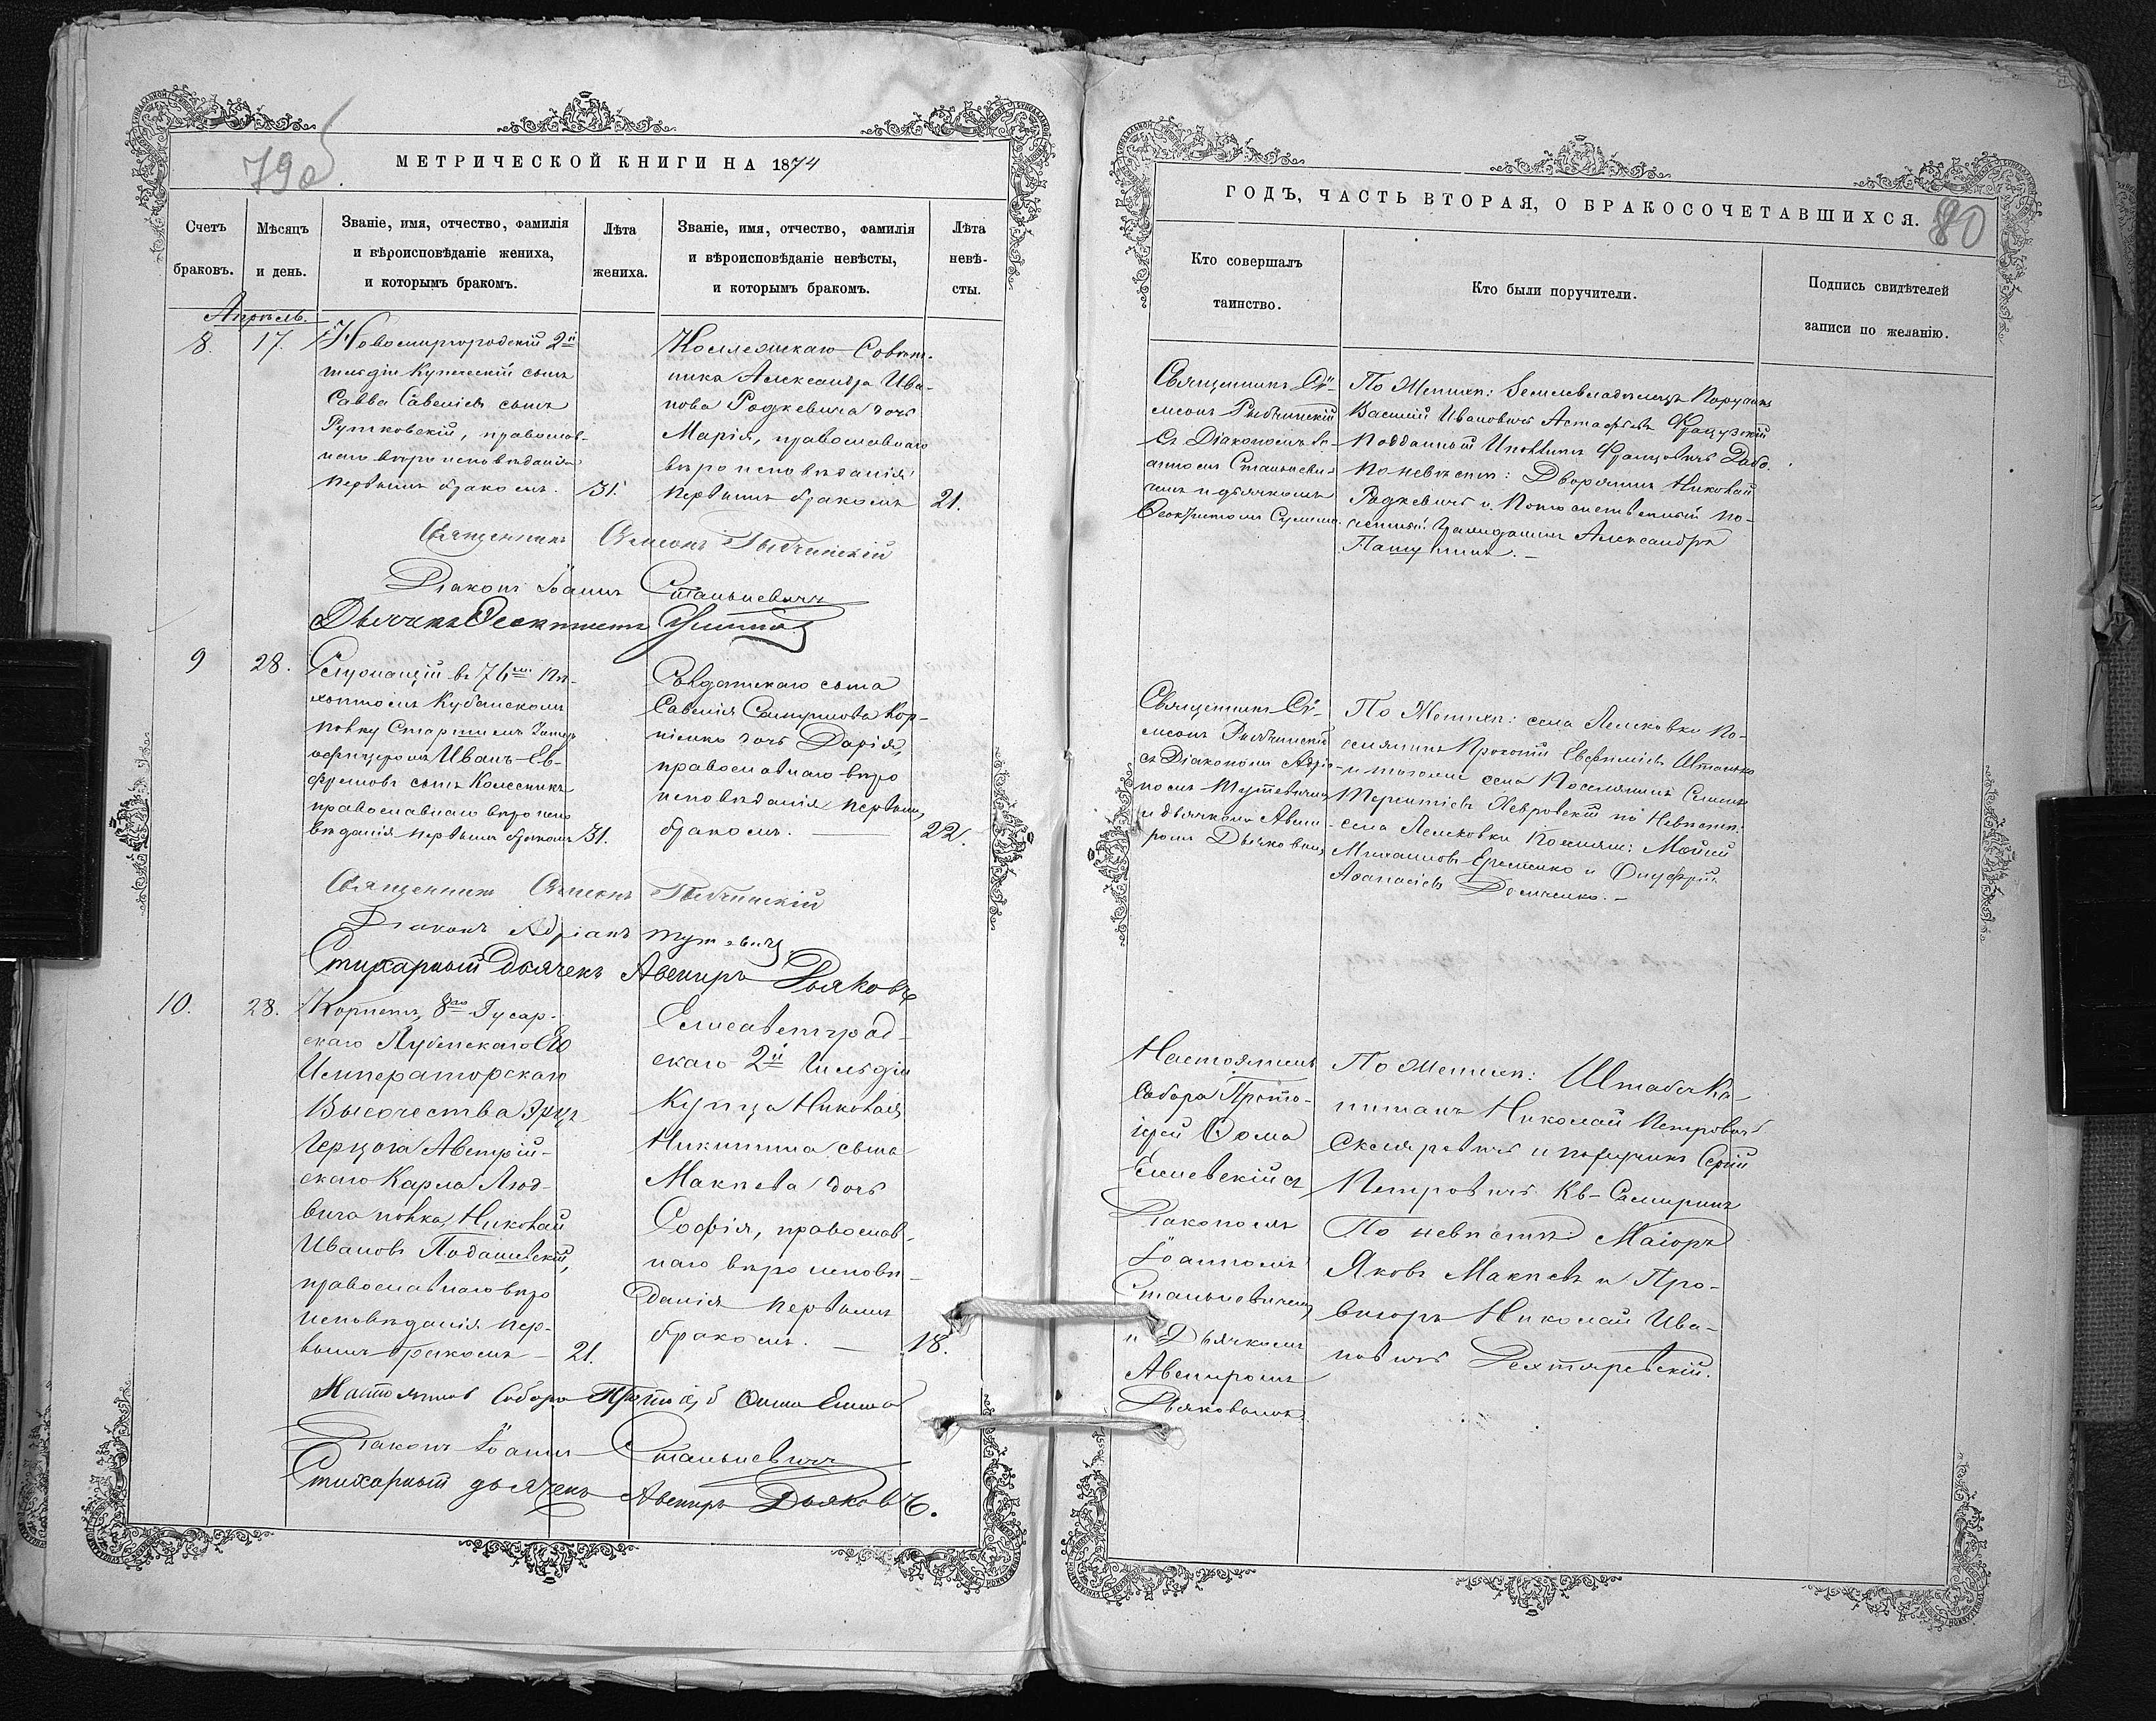 79об.
МЕТРИЧЕСКОЙ КНИГИ НА 1874
Счетъ браковъ.
Мѣсяцъ и день.
Званіе, имя, отчество, фамилія
и вѣроисповѣданіе жениха,
и которымъ бракомъ.
Лѣта жениха.
Званіе, имя, отчество, фамилія
и вѣроисповѣданіе невѣсты,
и которымъ бракомъ.
Лѣта невѣ-
сты.
Апрѣль.
8.
17
Новомиргородскій 2й
гильдіи Купеческій сынъ
Савва Савеліевъ сынъ
Рутковскій, православ-
наго вѣроисповѣданія
первымъ бракомъ.
31.
Коллежскаго Совѣт-
ника Александра Ива-
нова Родкевича дочь
Марія, православнаго
вѣроисповѣданія
первымъ бракомъ
21.
Священникъ Симеонъ Рыбчинскій
Діаконъ Іоаннъ Станкевичъ
Дьячекъ Феоктистъ
9
28.
Служащій въ 76мъ Пѣ-
хотномъ Кубанскомъ
полку Старшимъ Унтеръ
офицеромъ Иванъ Ев-
фимовъ сынъ Колесникъ
православнаго вѣроиспо
вѣданія первымъ бракомъ
31.
Солдатскаго сына
Савелія Самуилова Кор-
ніенко дочь Дарія,
православнаго вѣро
исповѣданія первымъ
бракомъ.
22.
Священникъ Симеонъ Рыбчинскій
Діаконъ Адріанъ Тутевичъ
Стихарный Дьячекъ Авениръ Дьяковъ
10.
28.
Корнетъ, 8го Гусар-
скаго Лубенскаго Его
Императорскаго
Высочества Эрцъ
Герцога Австрій-
скаго Карла Люд-
вига полка, Николай
Ивановъ Подашевскій,
православнаго вѣро
исповѣданія пер-
вымъ бракомъ
21.
Елисаветград-
скаго 2й гильдіи
Купца Николая
Никитина сына
Макѣева дочь
Софія, православ-
наго вѣроисповѣ-
данія первымъ
бракомъ.
18.
Настоятель Собора Протоіерей Фома
Діаконъ Іоаннъ Станкевичъ
Стихарный дьячекъ Авениръ Дьяковъ.
80
ГОДЪ, ЧАСТЬ ВТОРАЯ, О БРАКОСОЧЕТАВШИХСЯ.
Кто совершалъ
таинство.
Кто были поручители.
Подпись свидѣтелей
записи по желанію.
Священникъ Си-
меонъ Рыбчинскій
съ Діакономъ Іо-
анномъ Станкеви-
чемъ и дьячкомъ
Феоктистомъ
По Женихѣ: Землевладѣлецъ Поручикъ
Василій Ивановичъ Астафьевъ Французскій
Подданный Ипполитъ Францовичъ
По невѣстѣ: Дворянинъ Николай
Родкевичъ и Потомственный По-
четный Гражданинъ Александръ
Пашутинъ.
Священникъ Си-
меонъ Рыбчинскій
съ Діакономъ Адріа-
номъ Тутевичемъ
и дьячкомъ Авени-
ромъ Дьяковымъ
По Женихѣ: села Лелековки По-
селянинъ Прокопій Евфиміевъ
и тогоже села Поселянинъ
Терентіевъ по Невѣстѣ:
села Лелековки Поселян: Мойсей
Михайловъ Еременко и Онуфрій
Афанасіевъ Демченко.
Настоятель
Собора Прото-
іерей Фома
съ
Діакономъ
Іоанномъ
Станкевичемъ
и Дьячкомъ
Авениромъ
Дьяковымъ.
По Женихѣ: Штабсъ Ка-
питанъ Николай Петровичъ
и поручикъ Сергій
Петровичъ
По невѣстѣ: Маіоръ
Яковъ Макѣевъ и Про-
визоръ Николай Ива-
новичъ Дехтяревскій.